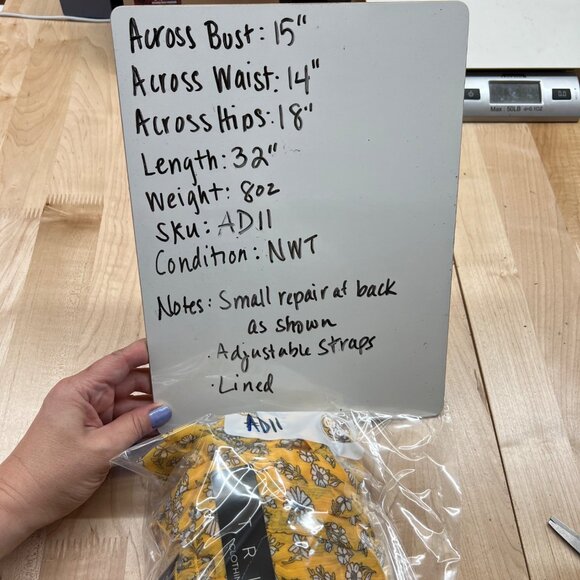 Across Bust: 15"
Across Waist: 14"
Across Hips: 18"
Length: 32"
Weight: 8oz
Sku: AD11
Condition: NWT
Notes: Small repair at back
as shown
· Adjustable Straps
· Lined
AD11
Max: 50LB d=0.1oz